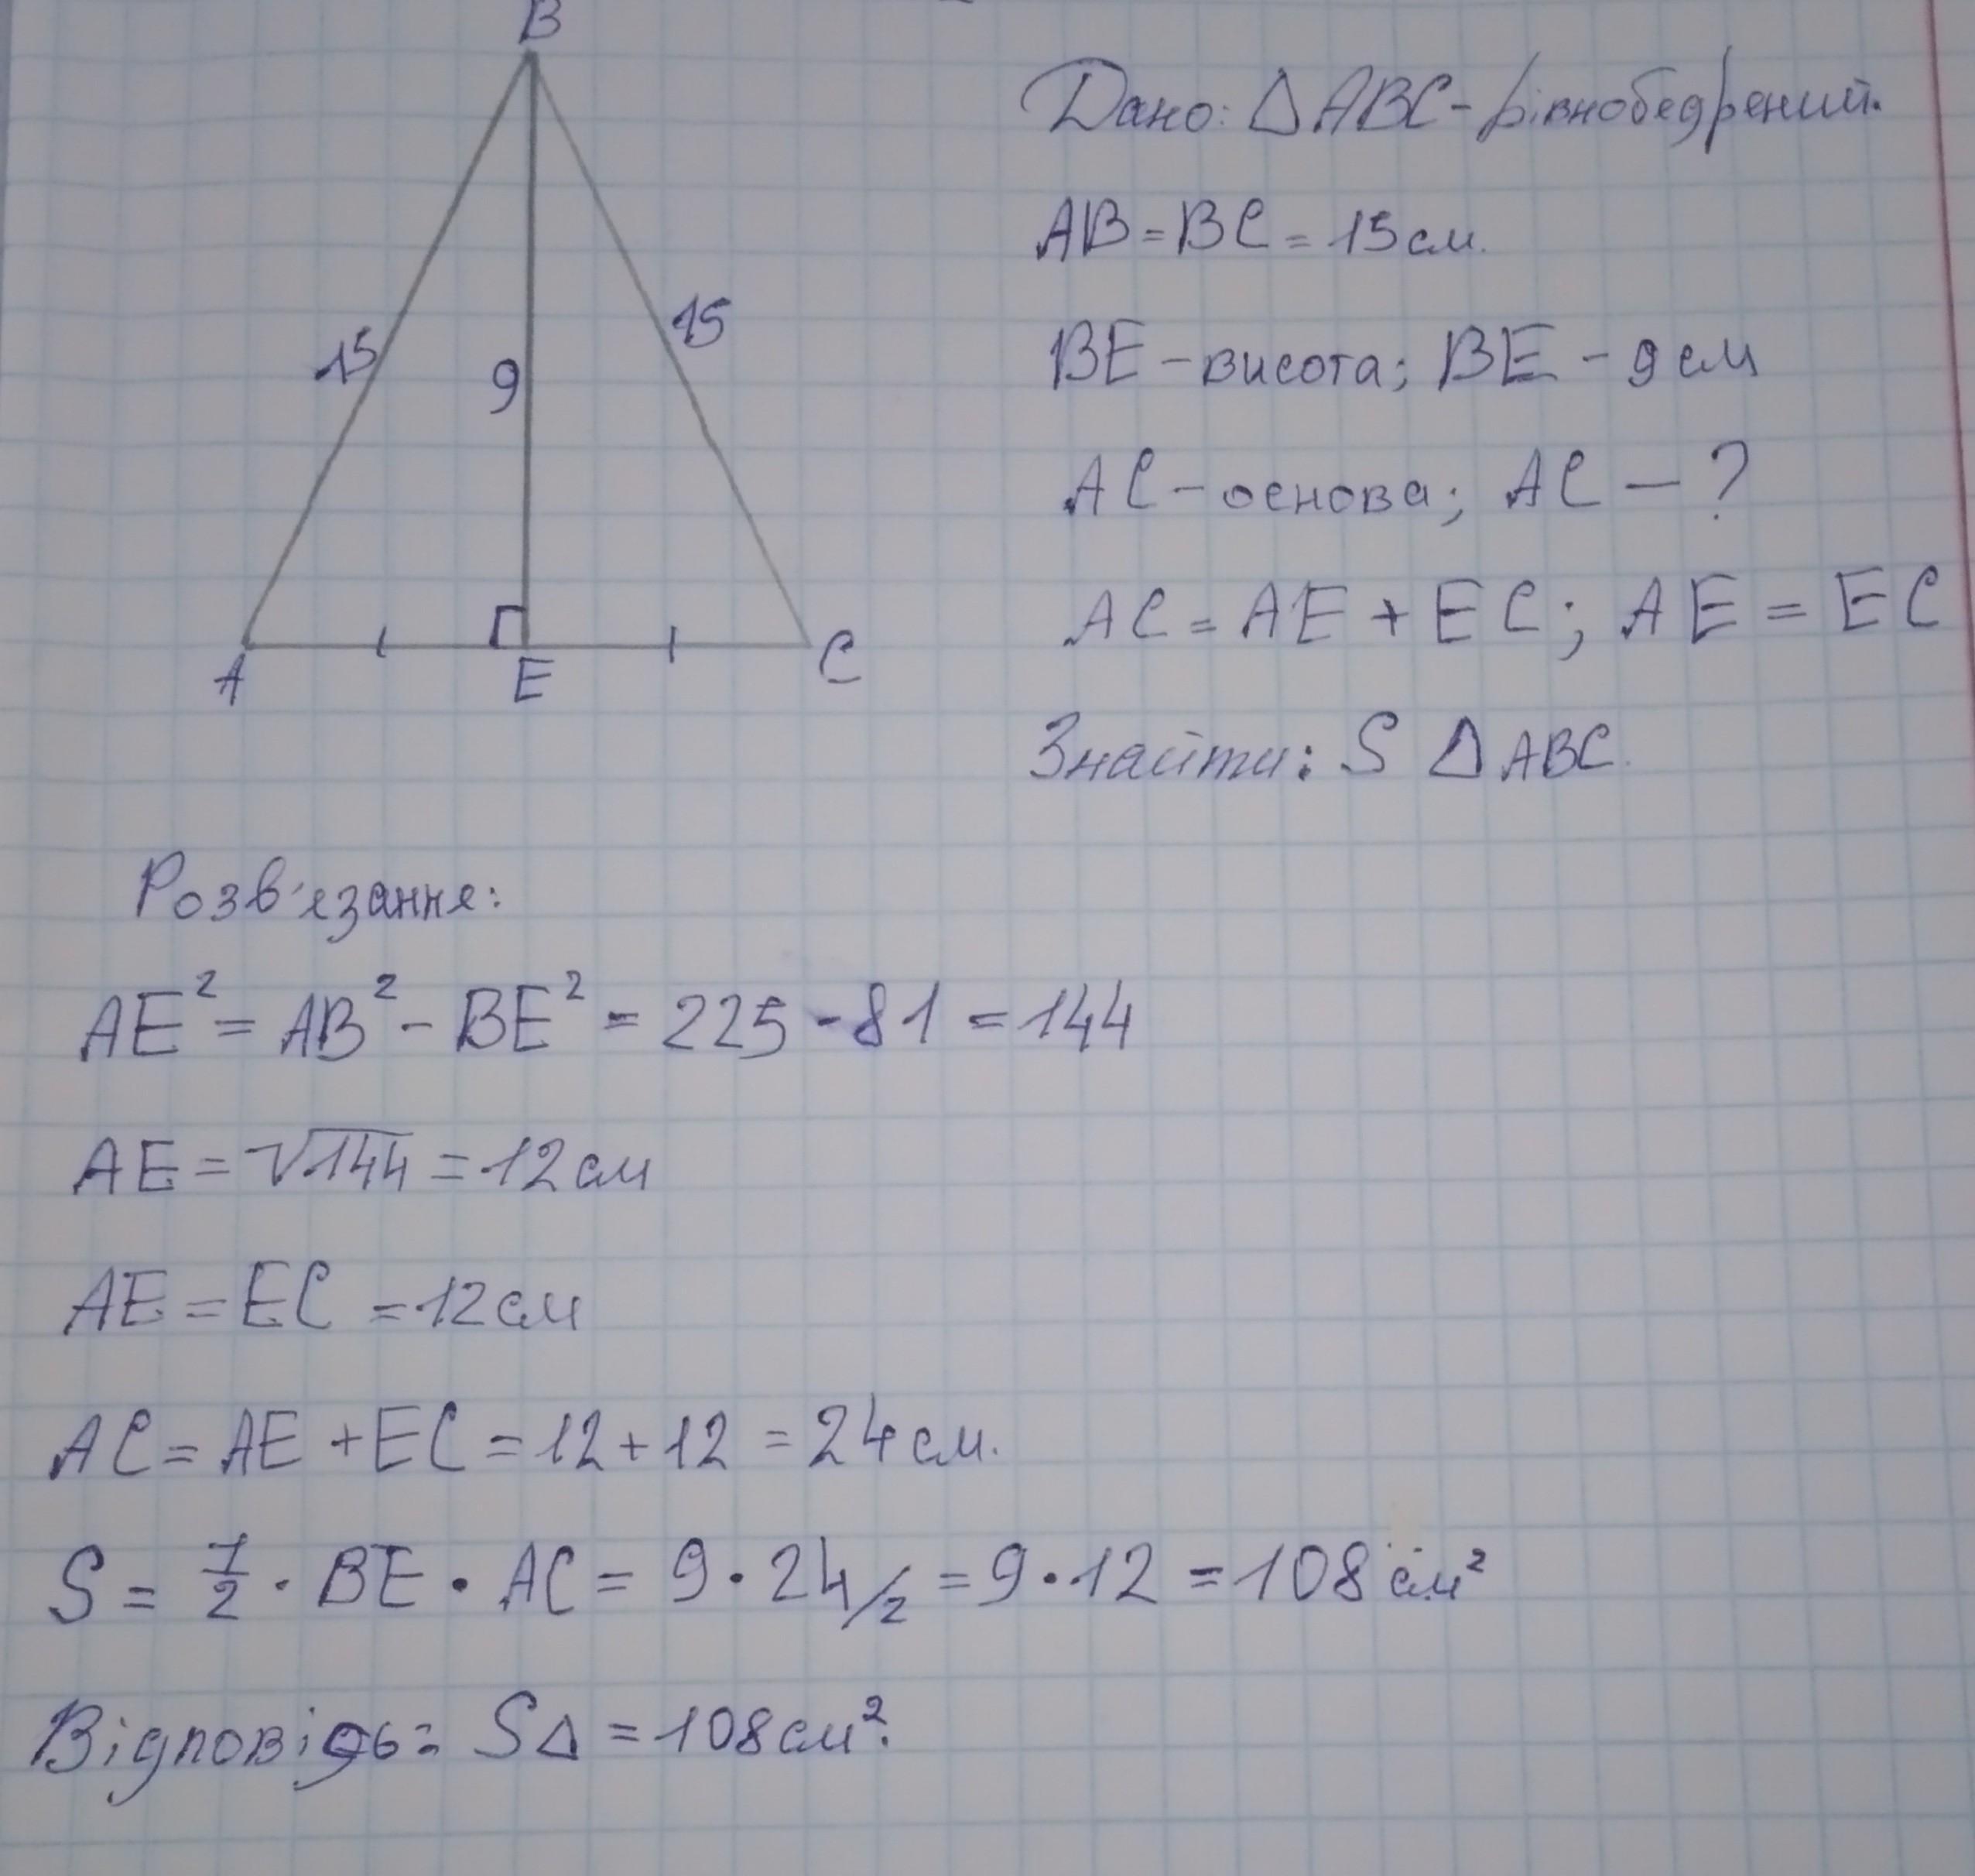 B
15
9
15
A
E
C
Дано: △ABC - рівнобедрений.
AB = BC = 15 см.
BE - висота; BE - 9 см
AC - основа; AC - ?
AC = AE + EC; AE = EC
Знайти: S △ABC.
Розв'язання:
AE² = AB² - BE² = 225 - 81 = 144
AE = √144 = 12 см
AE = EC = 12 см
AC = AE + EC = 12 + 12 = 24 см.
S = 1/2 · BE · AC = 9 · 24/2 = 9 · 12 = 108 см²
Відповідь: S△ = 108 см².